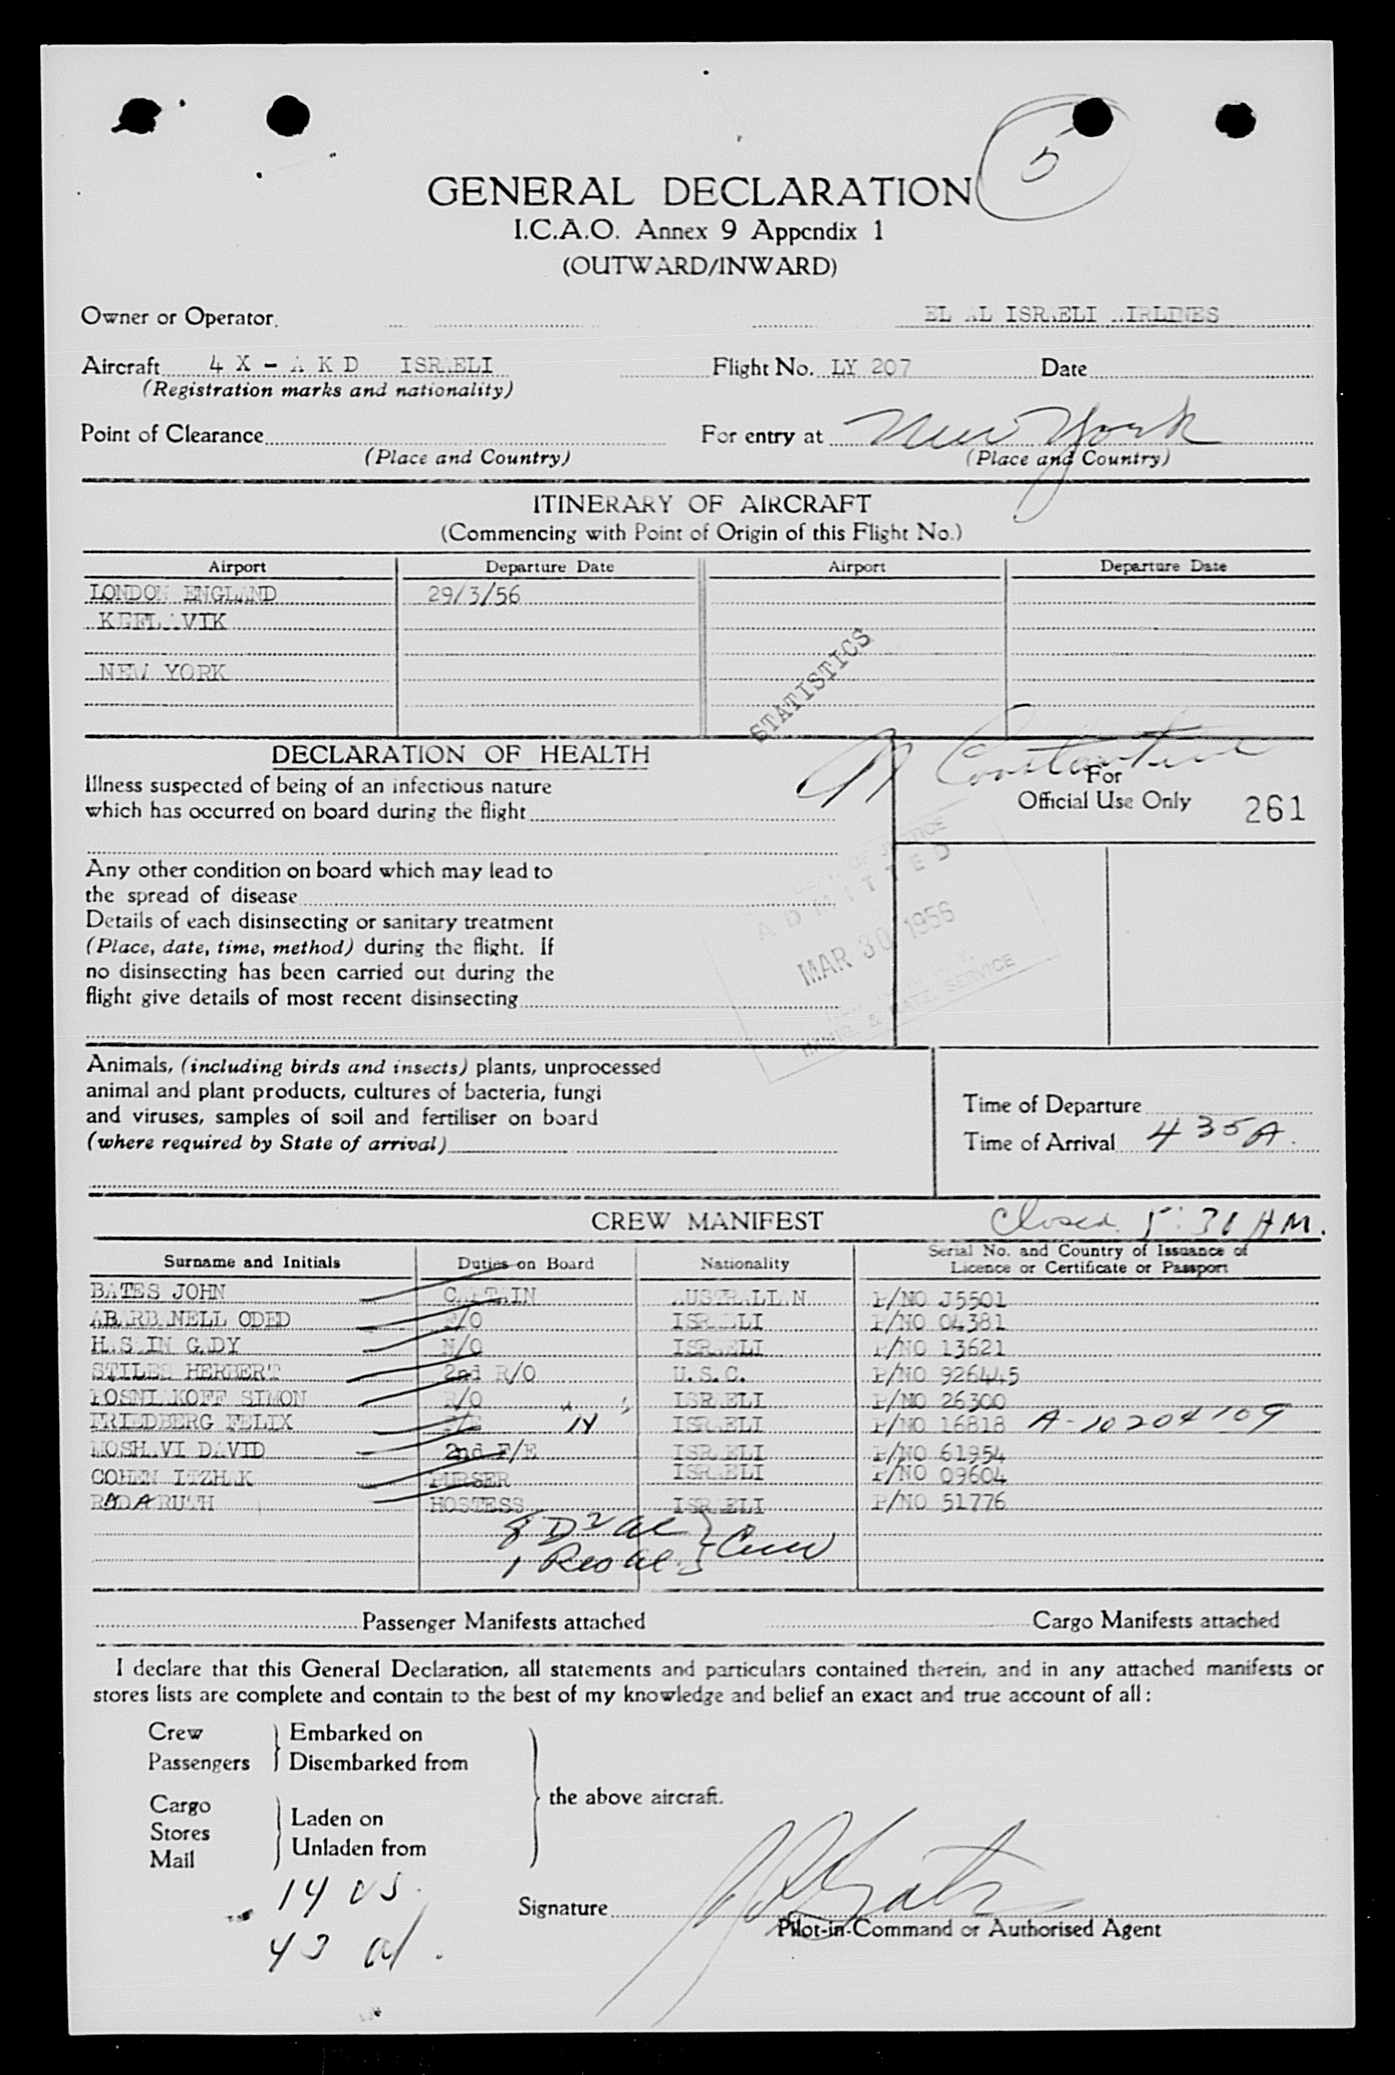 5
GENERAL DECLARATION
I.C.A.O. Annex 9 Appendix 1
(OUTWARD/INWARD)
Owner or Operator EL AL ISRAELI AIRLINES
Aircraft 4 X - A K D ISRAELI Flight No. LY 207 Date
(Registration marks and nationality)
Point of Clearance For entry at New York
(Place and Country) (Place and Country)
ITINERARY OF AIRCRAFT
(Commencing with Point of Origin of this Flight No.)
Airport Departure Date Airport Departure Date
LONDON ENGLAND 29/3/56
KEFLAVIK
NEW YORK
STATISTICS
DECLARATION OF HEALTH
Illness suspected of being of an infectious nature
which has occurred on board during the flight
N Constantine
For
Official Use Only 261
Any other condition on board which may lead to
the spread of disease
Details of each disinsecting or sanitary treatment
(Place, date, time, method) during the flight. If
no disinsecting has been carried out during the
flight give details of most recent disinsecting
OF JUSTICE
ADMITTED
MAR 30 1956
IMMIG. & NATZ. SERVICE
Animals, (including birds and insects) plants, unprocessed
animal and plant products, cultures of bacteria, fungi
and viruses, samples of soil and fertiliser on board
(where required by State of arrival)
Time of Departure
Time of Arrival 435A.
CREW MANIFEST Closed 5:31 AM.
Surname and Initials Duties on Board Nationality Serial No. and Country of Issuance of Licence or Certificate or Passport
BATES JOHN CAPTAIN AUSTRALIAN P/NO J5501
ABARBANELL ODED F/O ISRAELI P/NO 04381
HASAIN GADY N/O ISRAELI P/NO 13621
STILES HERBERT 2nd R/O U.S.C. P/NO 926445
POSNIAKOFF SIMON R/O ISRAELI P/NO 26300
FRIEDBERG FELIX F/E 14 ISRAELI P/NO 16818 A-10204109
MOSHAVI DAVID 2nd F/E ISRAELI P/NO 61954
COHEN ITZHAK PURSER ISRAELI P/NO 09604
RADA RUTH HOSTESS ISRAELI P/NO 51776
8 D2 al
1 Res al. } Crew
Passenger Manifests attached Cargo Manifests attached
I declare that this General Declaration, all statements and particulars contained therein, and in any attached manifests or
stores lists are complete and contain to the best of my knowledge and belief an exact and true account of all:
Crew Embarked on
Passengers Disembarked from
the above aircraft.
Cargo
Stores
Mail
Laden on
Unladen from
14 US.
43 al.
Signature
Pilot-in-Command or Authorised Agent